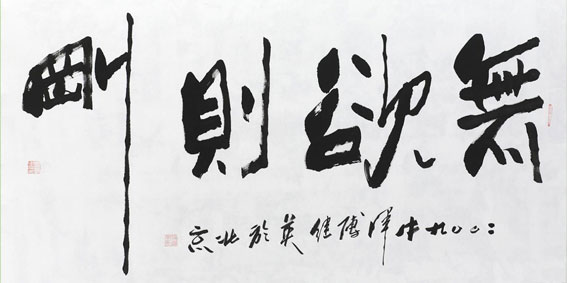 無欲則剛
二〇〇九年 英於北京